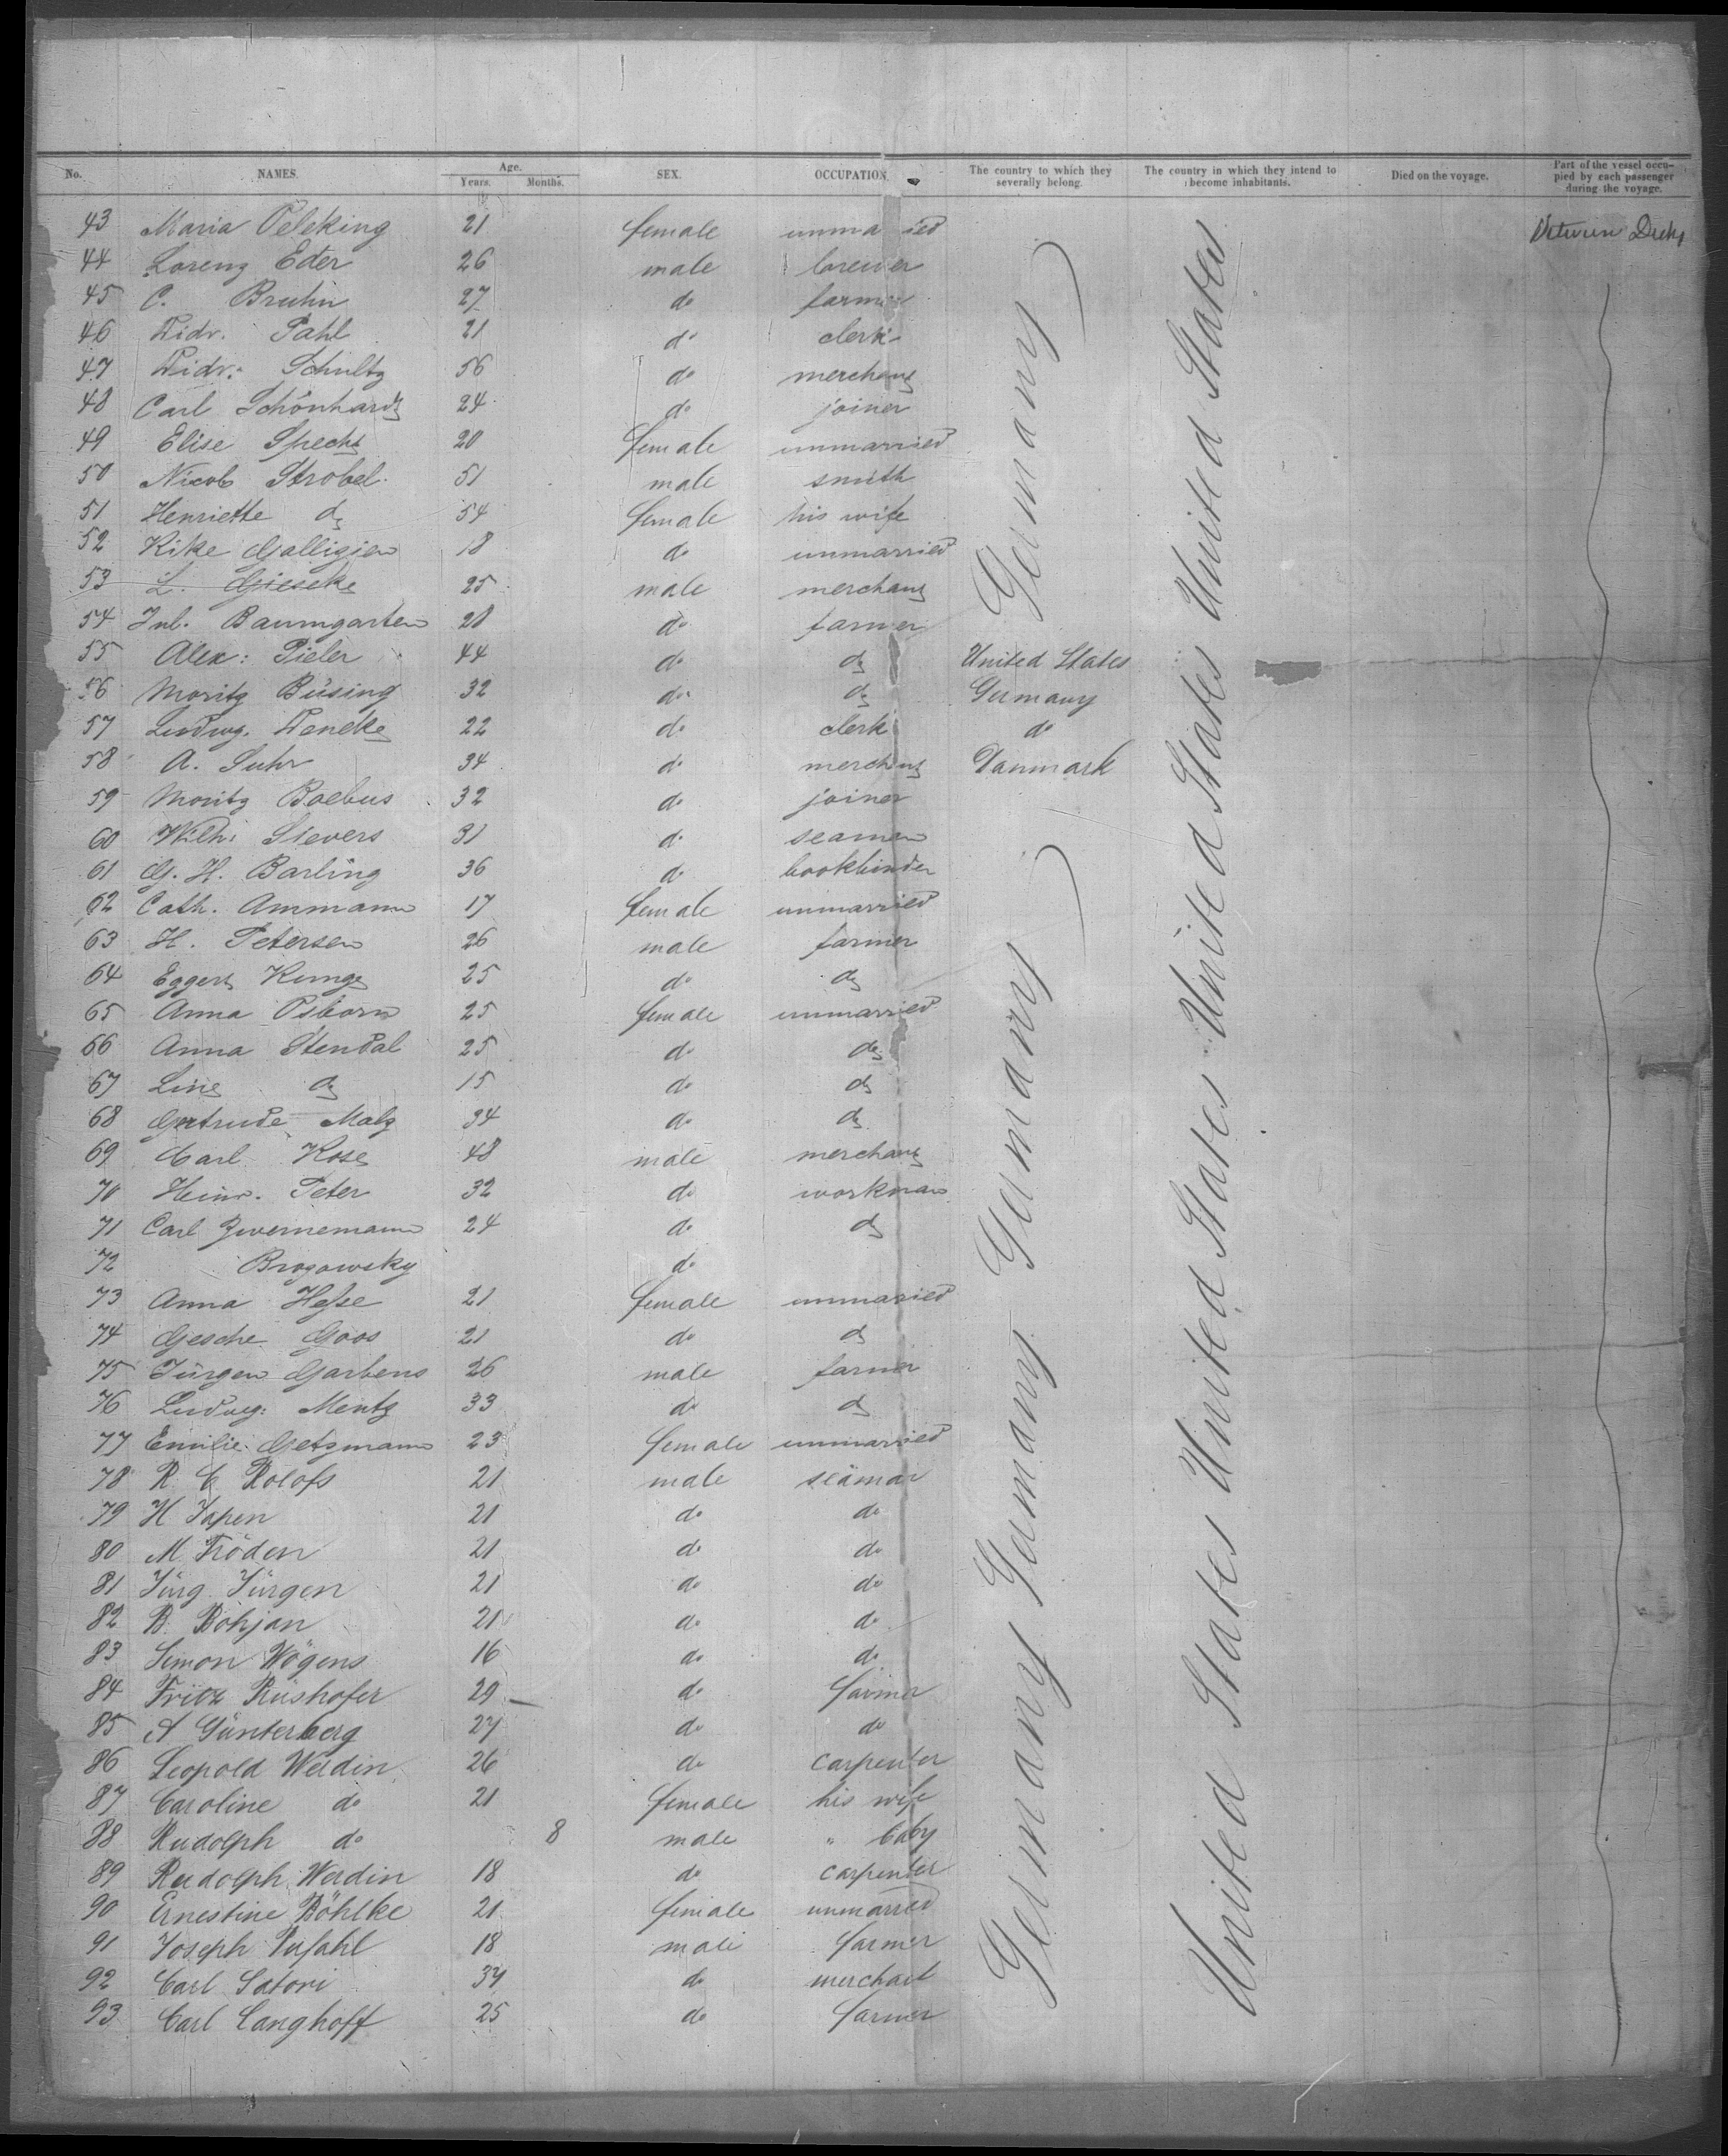 No. NAMES. Age. Years. Months. SEX. OCCUPATION. The country to which they severally belong. The country in which they intend to become inhabitants. Died on the voyage. Part of the vessel occupied by each passenger during the voyage.
43 Maria Peleking 21 female unmarried Between Decks
44 Lorenz Eder 26 male brewer
45 C. Bruhn 27 do farmer
46 Fidr. Pahl 21 do clerk
47 Fidr. Schultz 56 do merchant
48 Carl Schönhardt 24 do joiner
49 Elise Specht 20 female unmarried
50 Nicol Strobel 51 male smith
51 Henriette do 54 female his wife
52 Rike Galligien 18 do unmarried
53 L. Gieseke 25 male merchant
54 Jul. Baumgarten 28 do farmer
55 Alex: Pieler 44 do do United States
56 Moritz Büsing 32 do do Germany
57 Ludwig. Deneke 22 do clerk do
58 A. Suhr 34 do merchant Danmark
59 Moritz Boebus 32 do joiner
60 Wilh: Sievers 31 do seaman
61 G. H. Barling 36 do bookbinder
62 Cath. Ammann 17 female unmarried
63 H. Petersen 26 male farmer
64 Eggert Runge 25 do do
65 Anna Osborn 25 female unmarried
66 Anna Stendal 25 do do
67 Line do 15 do do
68 Gertrude Malz 34 do do
69 Carl Rose 48 male merchant
70 Heinr. Peter 32 do workman
71 Carl Zwernemann 24 do do
72 Brozowsky do
73 Anna Hesse 21 female unmaried
74 Gesche Goos 21 do do
75 Jürgen Garbens 26 male farmer
76 Ludwg: Mentz 33 do do
77 Emilie Getzmann 23 female unmarried
78 R. C Rolofs 21 male seaman
79 H Japen 21 do do
80 M. Fröden 21 do do
81 Jürg Jürgen 21 do do
82 B. Bohjan 21 do do
83 Simon Wögens 16 do do
84 Fritz Rüshofer 29 do farmer
85 A Günterberg 27 do do
86 Leopold Werdin 26 do carpenter
87 Caroline do 21 female his wife
88 Rudolph do 8 male " baby
89 Rudolph Werdin 18 do carpenter
90 Ernestine Böhlke 21 female unmarried
91 Joseph Pufahl 18 male farmer
92 Carl Satori 34 do merchant
93 Carl Langhoff 25 do farmer
Germany
Germany
Germany
Germany
United States
United States
United States
United States
United States